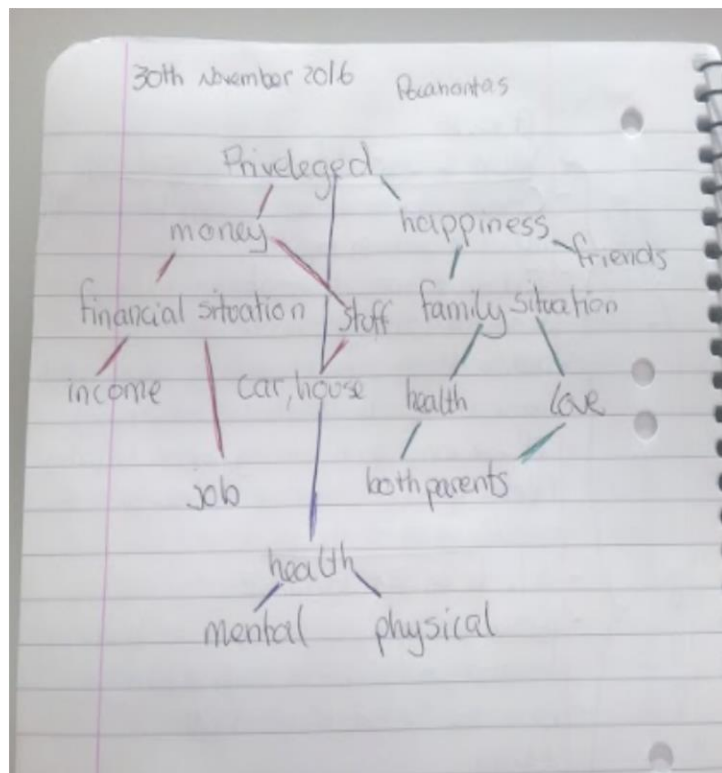 30th November 2016 Pocahontas
Priveleged
money happiness
friends
financial situation stuff family situation
income car, house health love
job both parents
health
mental physical